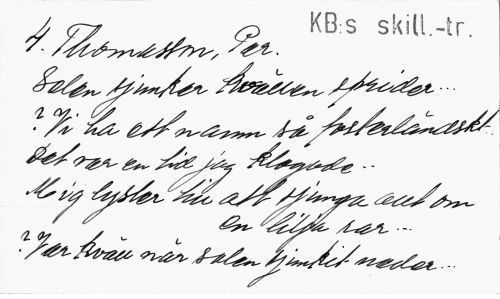 KB:s skill.-tr.
4. Thomasson, Per.
Solen sjunker kvällen sprider...
? Vi ha ett namn så fosterländskt
Det var en tid jag klagade..
Mig lyster nu att sjunga allt om
en lilja rar...
? Var kväll när solen sjunkit nedar...